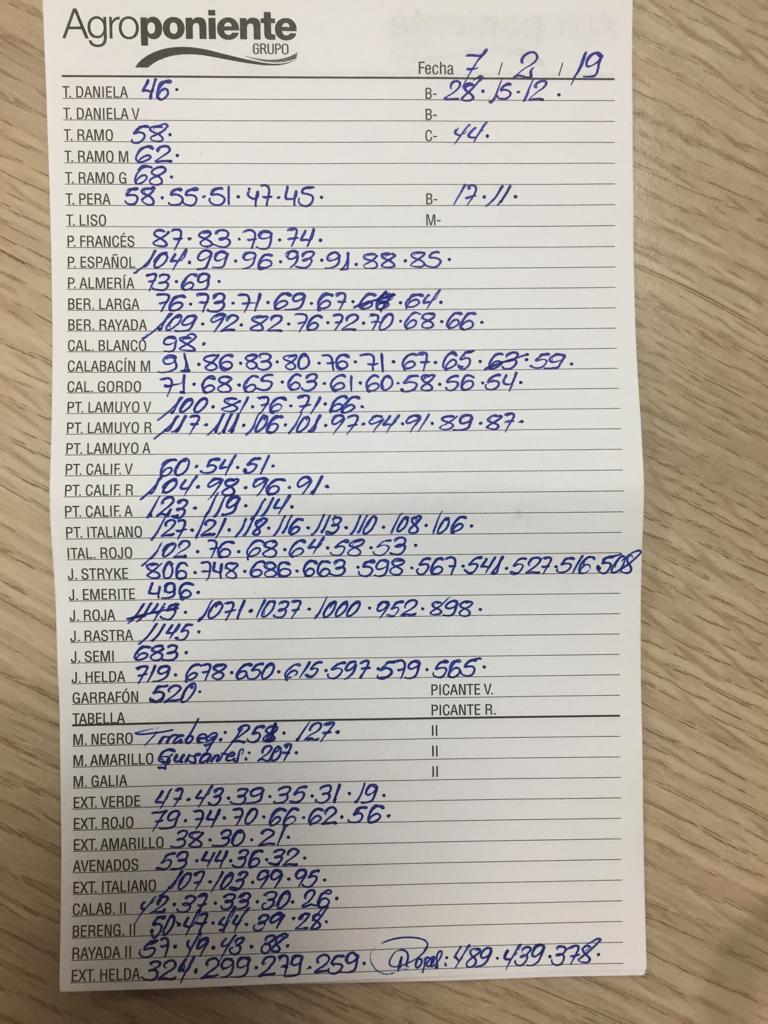 Agroponiente
GRUPO
Fecha 7 / 2 / 19
T. DANIELA 46· B- 28·15·12·
T. DANIELA V B-
T. RAMO 58· C- 44·
T. RAMO M 62·
T. RAMO G 68·
T. PERA 58·55·51·47·45· B- 17·11·
T. LISO M-
P. FRANCÉS 87·83·79·74·
P. ESPAÑOL 104·99·96·93·91·88·85·
P. ALMERÍA 73·69·
BER. LARGA 76·73·71·69·67·64·
BER. RAYADA 109·92·82·76·72·70·68·66·
CAL. BLANCO 98·
CALABACÍN M 91·86·83·80·76·71·67·65·63·59·
CAL. GORDO 71·68·65·63·61·60·58·56·54·
PT. LAMUYO V 100·81·76·71·66·
PT. LAMUYO R 117·111·106·101·97·94·91·89·87·
PT. LAMUYO A
PT. CALIF. V 60·54·51·
PT. CALIF. R 104·98·96·91·
PT. CALIF. A 123·119·114·
PT. ITALIANO 127·121·118·116·113·110·108·106·
ITAL. ROJO 102·76·68·64·58·53·
J. STRYKE 806·748·686·663·598·567·541·527·516·508
J. EMERITE 496·
J. ROJA 1145· 1071·1037·1000·952·898·
J. RASTRA 1145·
J. SEMI 683·
J. HELDA 719·678·650·615·597·579·565·
GARRAFÓN 520· PICANTE V.
TABELLA PICANTE R.
M. NEGRO Tirabeq: 258· 127· II
M. AMARILLO Guisantes: 207· II
M. GALIA II
EXT. VERDE 47·43·39·35·31·19·
EXT. ROJO 79·74·70·66·62·56·
EXT. AMARILLO 38·30·21·
AVENADOS 53·44·36·32·
EXT. ITALIANO 107·103·99·95·
CALAB. II 42·37·33·30·26·
BERENG. II 50·47·44·39·28·
RAYADA II 57·49·43·38·
EXT. HELDA 324·299·279·259· 489·439·378·